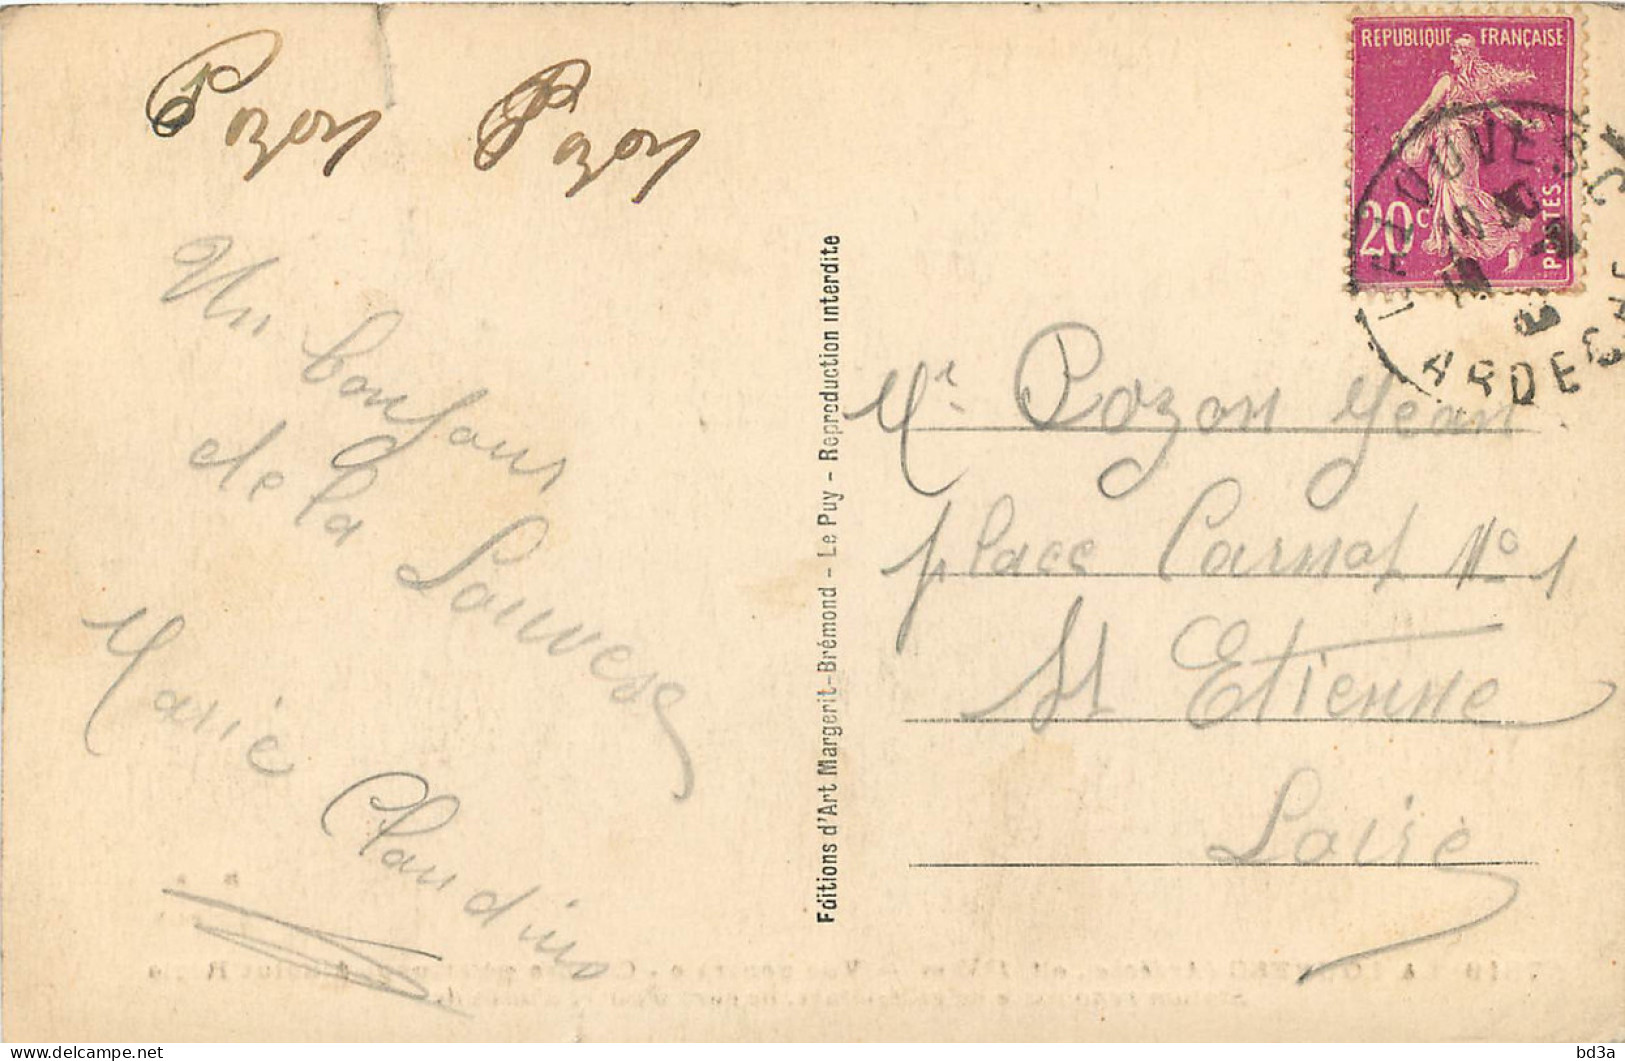 Pozon Pozon
Un bonjour
de la
Louvesc
Marie Claudius
Editions d'Art Margerit-Brémond - Le Puy - Reproduction interdite
REPUBLIQUE FRANÇAISE
20c
POSTES
LALOUVESC
ARDECHE
Mr Pozon Jean
place Carnot No 1
St Etienne
Loire
bd3a